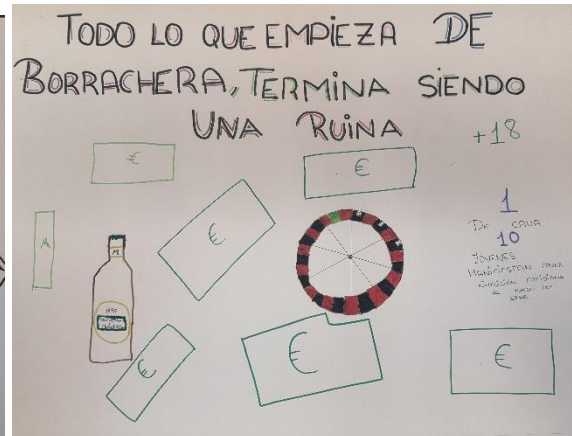 TODO LO QUE EMPIEZA DE
BORRACHERA, TERMINA SIENDO
UNA RUINA
+18
€
€
1
DE CADA
10
JÓVENES
MANIFIESTAN
€
M
€
€
€